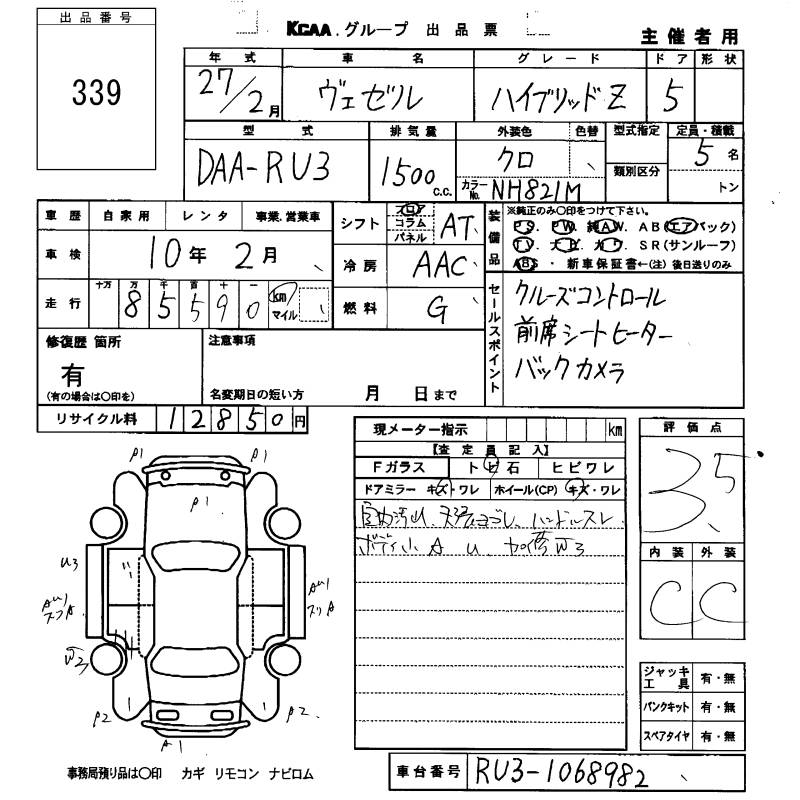 出品番号
339
KCAA. グループ 出品票
主催者用
年式 車名 グレード ドア 形状
27/2月 ヴェゼル ハイブリッドZ 5
型式 排気量 外装色 色替 型式指定 定員・積載
DAA-RU3 1500 c.c. クロ 類別区分 5名
カラーNo. NH821M トン
車歴 自家用 レンタ 事業.営業車
シフト フロア コラム パネル AT
装備品 ※純正のみ〇印をつけて下さい。
PS. PW. 純AW. AB(エアバック)
TV. ナビ. カワ. SR(サンルーフ)
ABS ・ 新車保証書←(注)後日送りのみ
車検 10年2月
冷房 AAC
走行 十万 万 千 百 十 一
85590 km マイル
燃料 G
セールスポイント
クルーズコントロール
前席シートヒーター
バックカメラ
修復歴 箇所
有
(有の場合は〇印を)
注意事項
名変期日の短い方 月 日まで
リサイクル料 12850円
現メーター指示 km
【査定員記入】
Fガラス トビ石 ヒビワレ
ドアミラー キズ・ワレ ホイール(CP) キズ・ワレ
ハンドルスレ
ボディ小A U
評価点
3.5
内装 外装
C C
P1 P1
P1
U3
AU1 AU1
スリA スリA
W3
P2 P2
A1
ジャッキ 工具 有・無
パンクキット 有・無
スペアタイヤ 有・無
事務局預り品は〇印 カギ リモコン ナビロム
車台番号 RU3-1068982